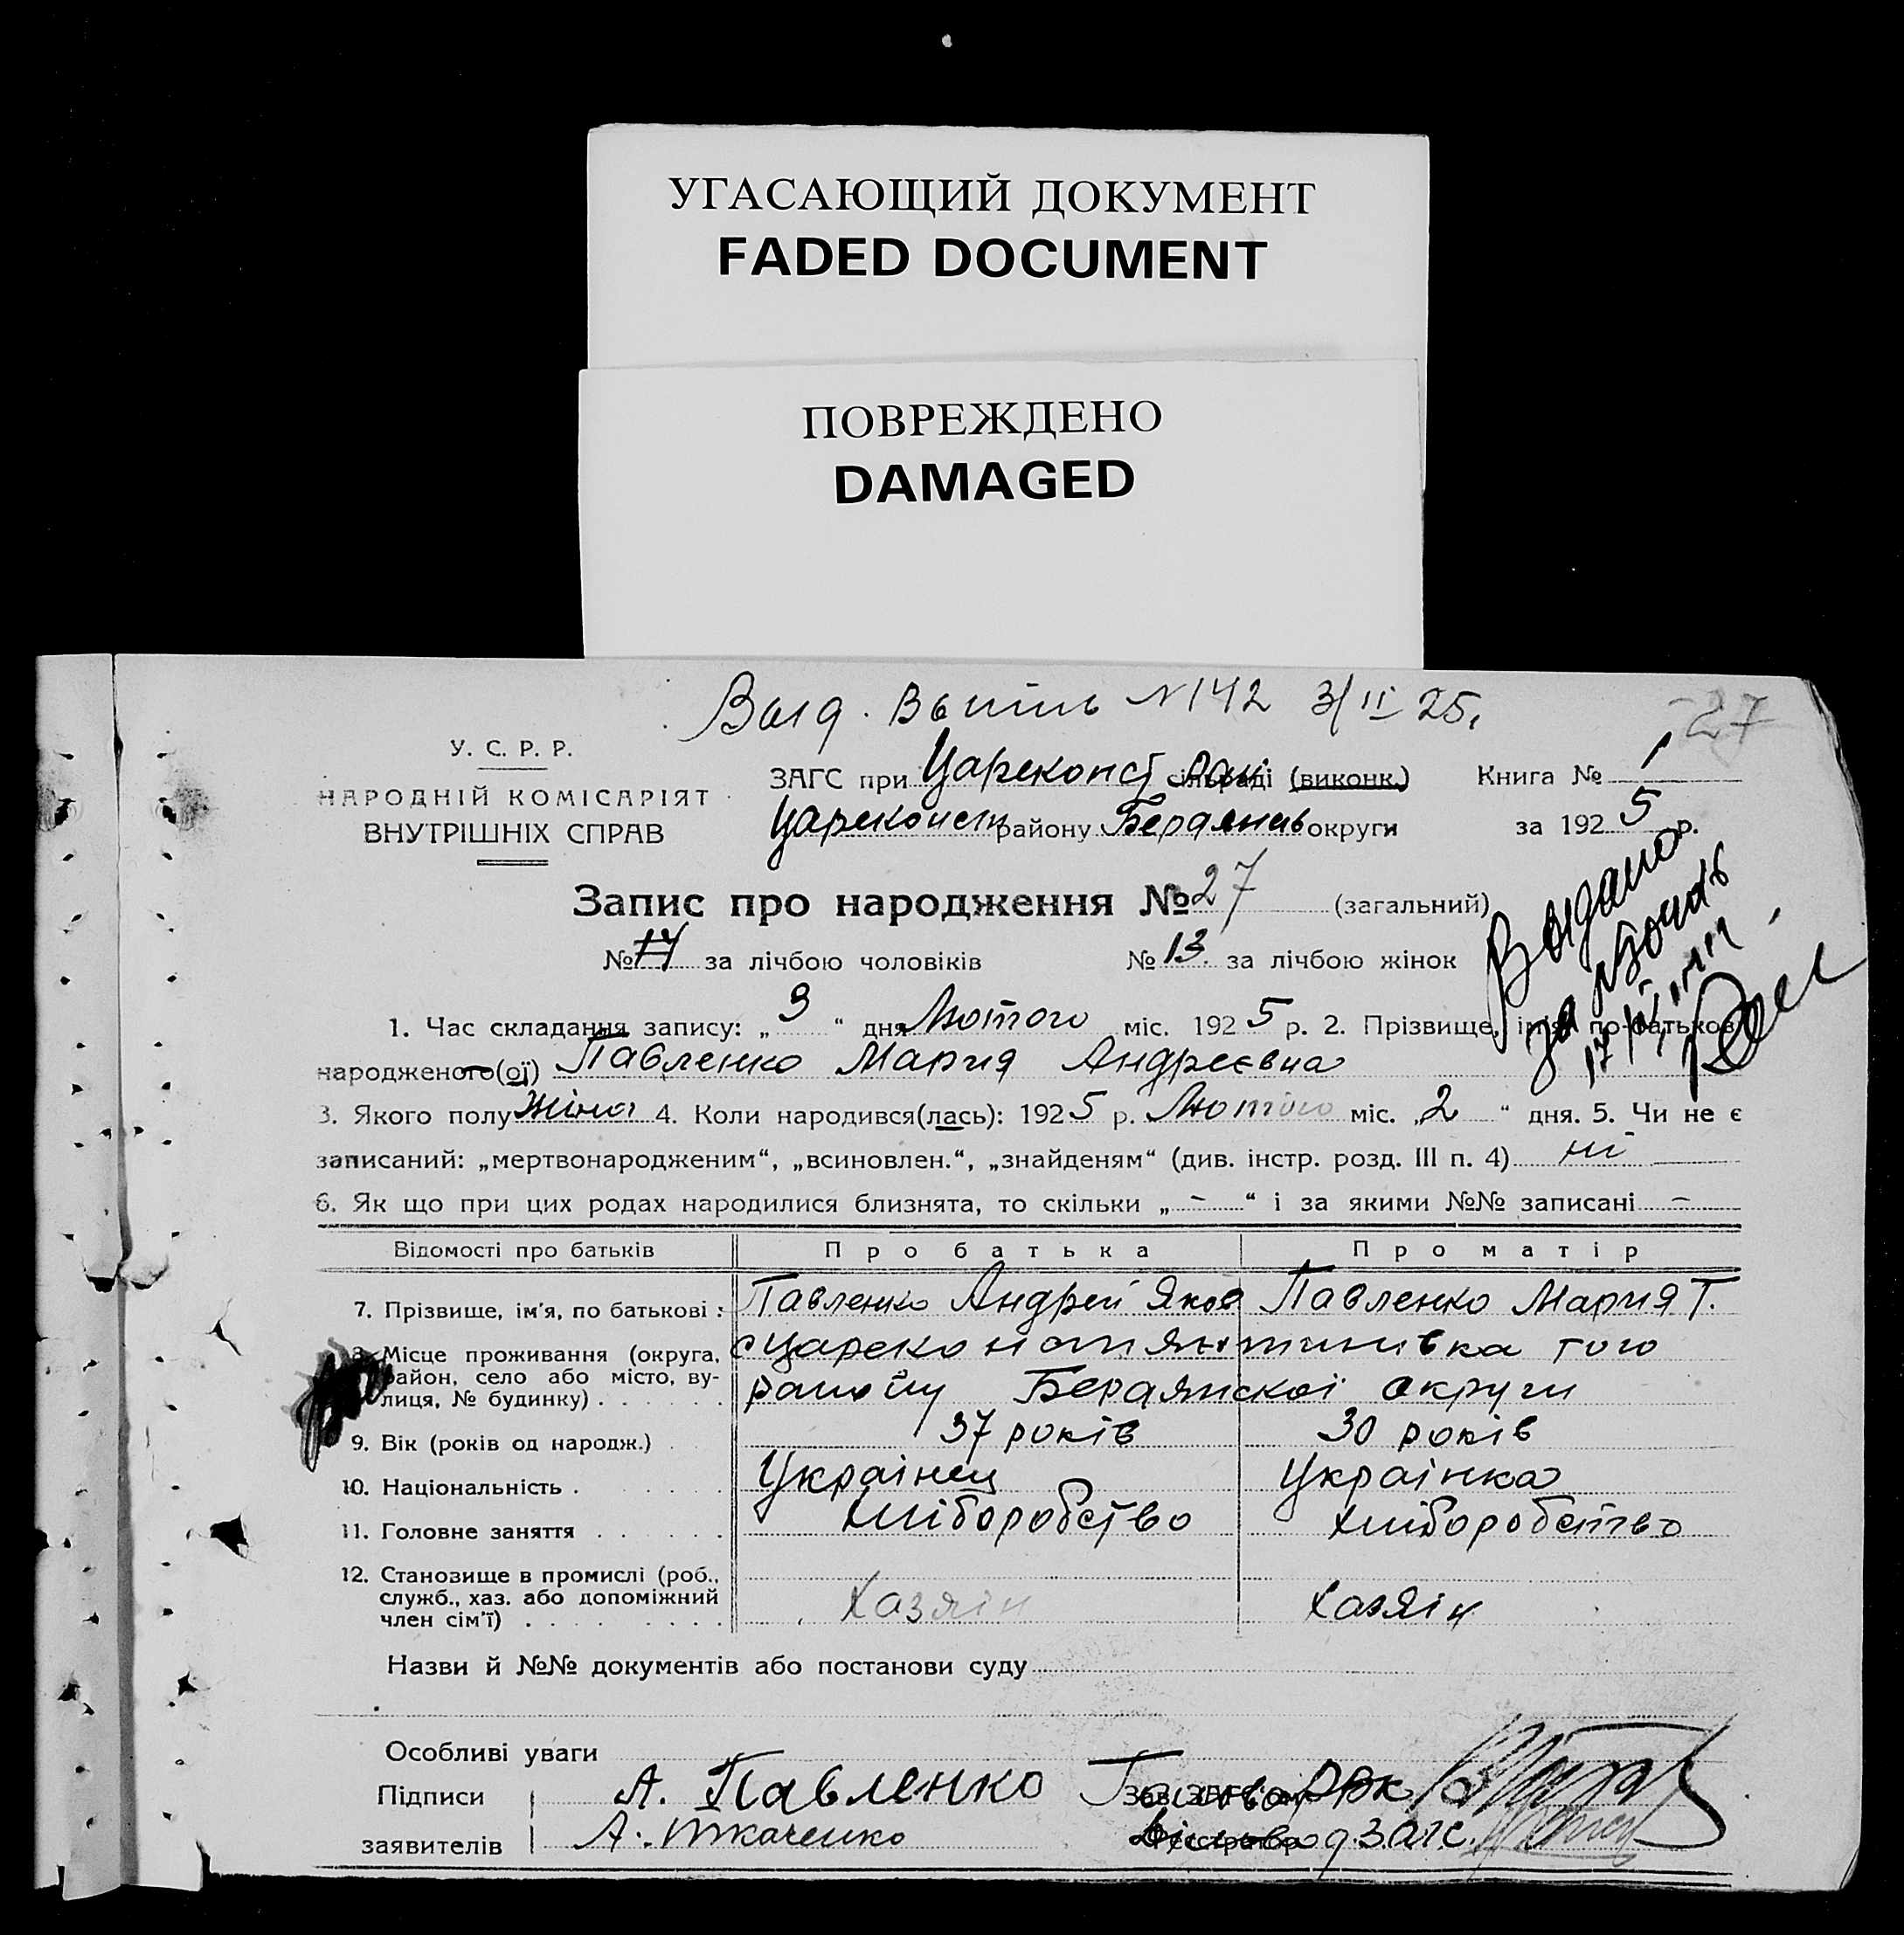 УГАСАЮЩИЙ ДОКУМЕНТ
FADED DOCUMENT
ПОВРЕЖДЕНО
DAMAGED
Выд. Вытпь №142 3/II 25.
27
У. С. Р. Р.
НАРОДНІЙ КОМІСАРІЯТ
ВНУТРІШНІХ СПРАВ
ЗАГС при Цареконст сільраді (виконк.) Книга № 1
Цареконст району Бердянсв округи за 192 5 р.
Запис про народження № 27 (загальний)
№ 14 за лічбою чоловіків № 13. за лічбою жінок
Выдано
1. Час складання запису: „ 3 “ дня Лютого міс. 192 5 р. 2. Прізвище, ім'я, по-батькові
народженого(ої) Павленко Мария Андреєвна
3. Якого полу Жіноч 4. Коли народився(лась): 192 5 р. Лютого міс. „ 2 “ дня. 5. Чи не є
записаний: „мертвонародженим“, „всиновлен.“, „знайденям“ (див. інстр. розд. III п. 4) ні
6. Як що при цих родах народилися близнята, то скільки „ – “ і за якими №№ записані –
Відомості про батьків Про батька Про матір
7. Прізвище, ім'я, по батькові : Павленко Андрей Яков Павленко Мария Т.
8. Місце проживання (округа, с Цареконстянтинивка того
район, село або місто, ву-
лиця, № будинку) . . . . . . району Бердянскоі округи
9. Вік (років од народж.) 37 років 30 років
10. Національність . Украінец Украінка
11. Головне заняття . . . . . . хліборобство хліборобство
12. Становище в промислі (роб.,
служб., хаз. або допоміжний
член сім'ї) . . . . . . . . Хазяін Хазяін
Назви й №№ документів або постанови суду
Особливі уваги
Підписи А. Павленко Голова РВК
заявителів А. Ткаченко Реєстратор ЗАГС.